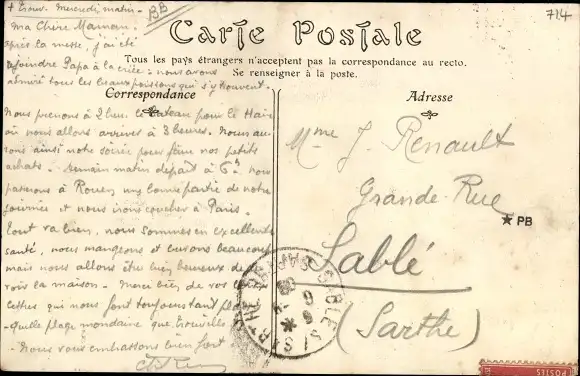 + Trouv. Mercredi matin.
BB
714
Ma Chère Maman,
Carte Postale
après la messe, j'ai été
rejoindre Papa à la criée : nous avons
admiré tous les beaux poissons qui s'y trouvent.
Tous les pays étrangers n'acceptent pas la correspondance au recto.
Se renseigner à la poste.
Correspondance
Nous prenons à 2 heu. le bateau pour le Havre
où nous allons arriver à 3 heures. Nous au-
rons ainsi notre soirée pour faire nos petits
achats. - Demain matin départ à 6h nous
passerons à Rouen une bonne partie de notre
journée et nous irons coucher à Paris.
Tout va bien, nous sommes en excellente
santé, nous mangeons et buvons beaucoup
mais nous allons être bien heureux de
voir la maison. - Merci bien de vos
lettres qui nous font toujours tant plaisir
- quelle plage mondaine que Trouville
- Nous vous embrassons bien fort
Adresse
Mme J. Renault
Grande Rue
★ PB
Sablé
(Sarthe)
SABLE S/ SARTHE
POSTES